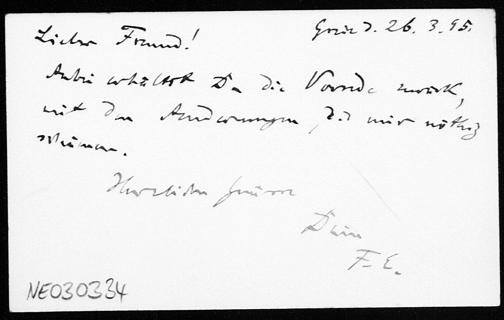 Lieber Freund! Graz d. 26. 3. 95.
Anbei erhältst Du die Vorrede zurück,
mit den Änderungen, die mir nöthig
schienen.
Herzliche Grüsse
Dein
F. E.
NE030334